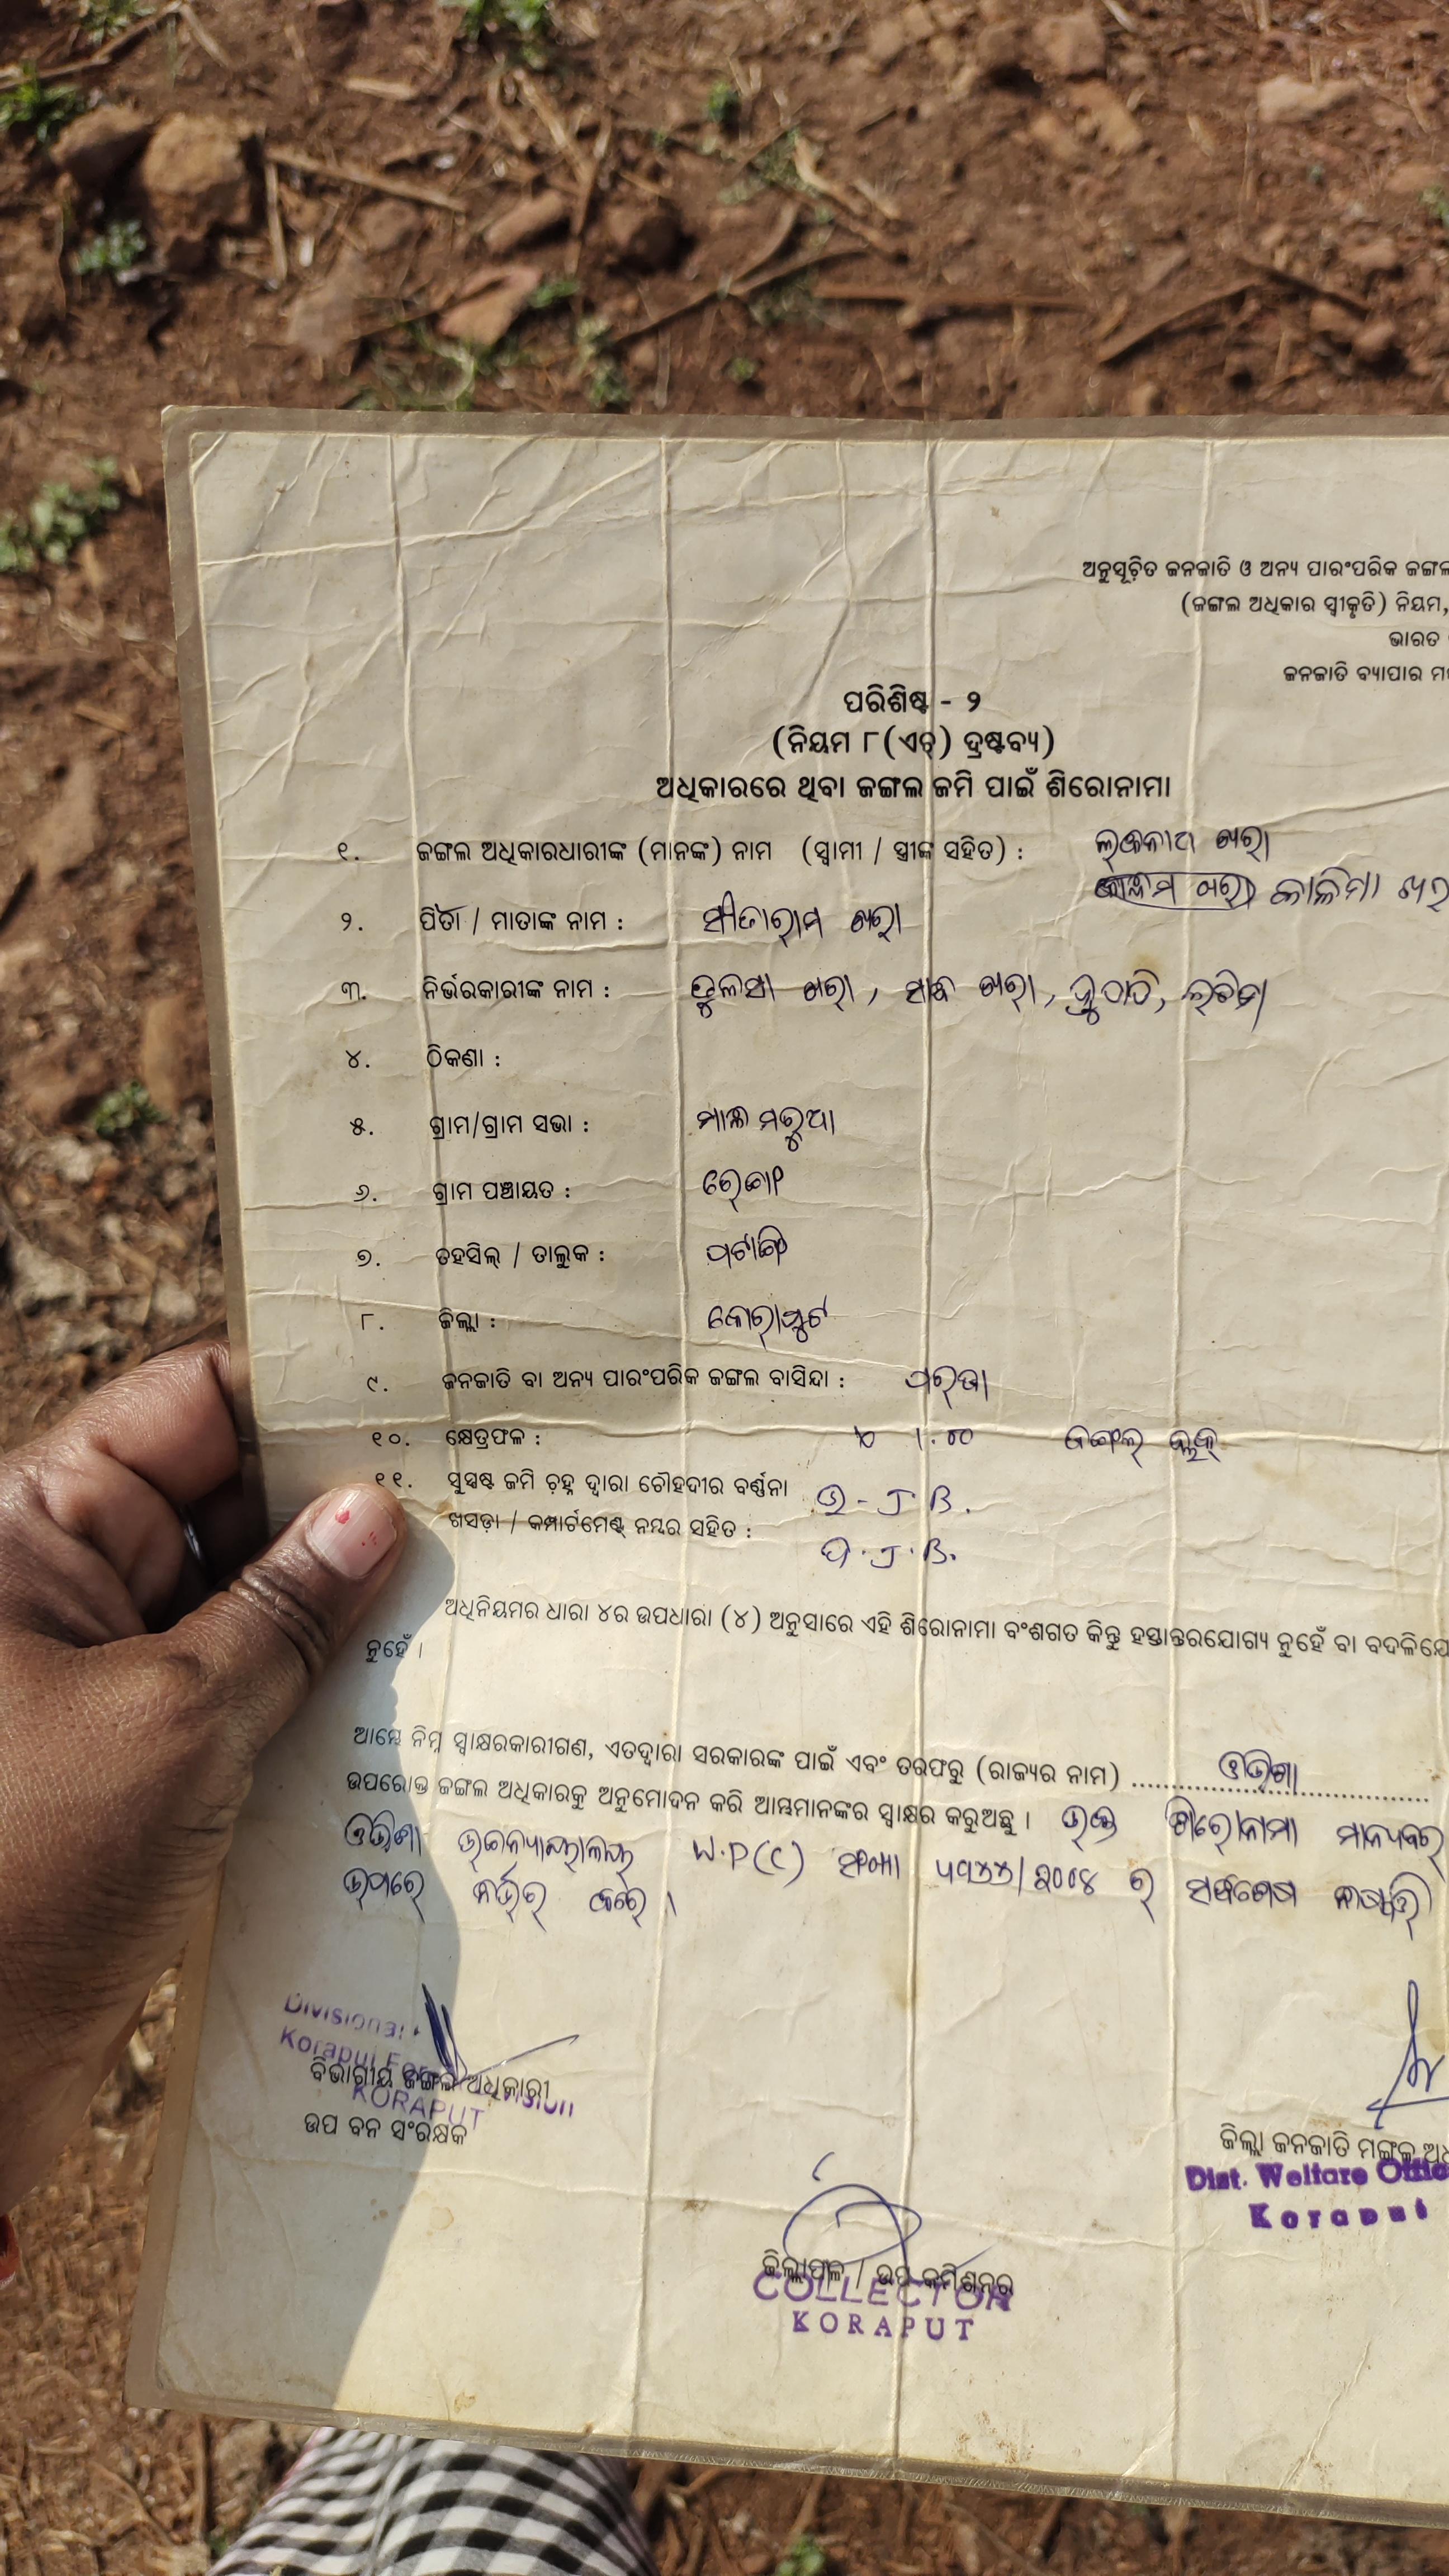 ଅନୁସୂଚିତ ଜନଜାତି ଓ ଅନ୍ୟ ପାରଂପରିକ ଜଙ୍ଗଲ
(ଜଙ୍ଗଲ ଅଧିକାର ସ୍ୱୀକୃତି) ନିୟମ,
ଭାରତ
ଜନଜାତି ବ୍ୟାପାର
ପରିଶିଷ୍ଟ - ୨
(ନିୟମ ୮(ଏଚ୍) ଦ୍ରଷ୍ଟବ୍ୟ)
ଅଧିକାରରେ ଥିବା ଜଙ୍ଗଲ ଜମି ପାଇଁ ଶିରୋନାମା
୧. ଜଙ୍ଗଲ ଅଧିକାରଧାରୀଙ୍କ (ମାନଙ୍କ) ନାମ (ସ୍ୱାମୀ / ସ୍ତ୍ରୀଙ୍କ ସହିତ) : ଖରା
କାଳିମା
୨. ପିତା / ମାତାଙ୍କ ନାମ : ସୀତାରାମ ଖରା
୩. ନିର୍ଭରକାରୀଙ୍କ ନାମ : ତୁଳସା ଖରା, ଖରା,
୪. ଠିକଣା :
୫. ଗ୍ରାମ/ଗ୍ରାମ ସଭା : ମାଳ ମରୁଆ
୬. ଗ୍ରାମ ପଞ୍ଚାୟତ :
୭. ତହସିଲ୍ / ତାଲୁକ : ପଟାଙ୍ଗି
୮. ଜିଲ୍ଲା : କୋରାପୁଟ
୯. ଜନଜାତି ବା ଅନ୍ୟ ପାରଂପରିକ ଜଙ୍ଗଲ ବାସିନ୍ଦା : ପରଜା
୧୦. କ୍ଷେତ୍ରଫଳ : ୧.୫୦ ଜଙ୍ଗଲ୍ ବ୍ଲକ୍
୧୧. ସୁସ୍ପଷ୍ଟ ଜମି ଚ଼ିହ୍ନ ଦ୍ୱାରା ଚୌହଦୀର ବର୍ଣ୍ଣନା ଉ - J B.
ଖସଡ଼ା / କମ୍ପାର୍ଟମେଣ୍ଟ୍ ନମ୍ବର ସହିତ : ପ. J. B.
ଅଧିନିୟମର ଧାରା ୪ର ଉପଧାରା (୪) ଅନୁସାରେ ଏହି ଶିରୋନାମା ବଂଶଗତ କିନ୍ତୁ ହସ୍ତାନ୍ତରଯୋଗ୍ୟ ନୁହେଁ ବା
ନୁହେଁ ।
ଆମ୍ଭେ ନିମ୍ନ ସ୍ୱାକ୍ଷରକାରୀଗଣ, ଏତଦ୍ୱାରା ସରକାରଙ୍କ ପାଇଁ ଏବଂ ତରଫରୁ (ରାଜ୍ୟର ନାମ) ଓଡିଶା
ଉପରୋକ୍ତ ଜଙ୍ଗଲ ଅଧିକାରକୁ ଅନୁମୋଦନ କରି ଆମ୍ଭମାନଙ୍କର ସ୍ୱାକ୍ଷର କରୁଅଛୁ । ଉକ୍ତ ଶିରୋନାମା ମାନ୍ୟବର
ଓଡିଶା ଉଚ୍ଚନ୍ୟାୟାଳୟ W.P(C) ସଂଖ୍ୟା ର ସର୍ବଶେଷ
ଉପରେ ନିର୍ଭର କରେ ।
Divisional
Koraput
KORAPUT
ବିଭାଗୀୟ ଜଙ୍ଗଲ ଅଧିକାରୀ
ଉପ ବନ ସଂରକ୍ଷକ
ଜିଲ୍ଲା ଜନଜାତି ମଙ୍ଗଳ
Dist. Welfare
Koraput
ଜିଲ୍ଲାପାଳ / ଉପ କମିଶନର
COLLECTOR
KORAPUT